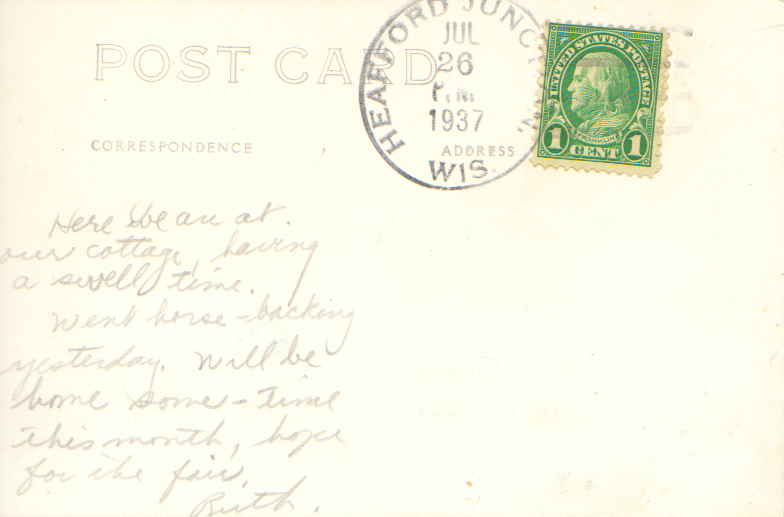 POST CARD
HEAFFORD JUNCTION
JUL
26
P.M.
1937
WIS.
UNITED STATES POSTAGE
FRANKLIN
1 CENT 1
CORRESPONDENCE
ADDRESS
Here we are at
our cottage, having
a swell time.
Went horse-backing
yesterday. Will be
home some-time
this month, hope
for the fair.
Ruth.